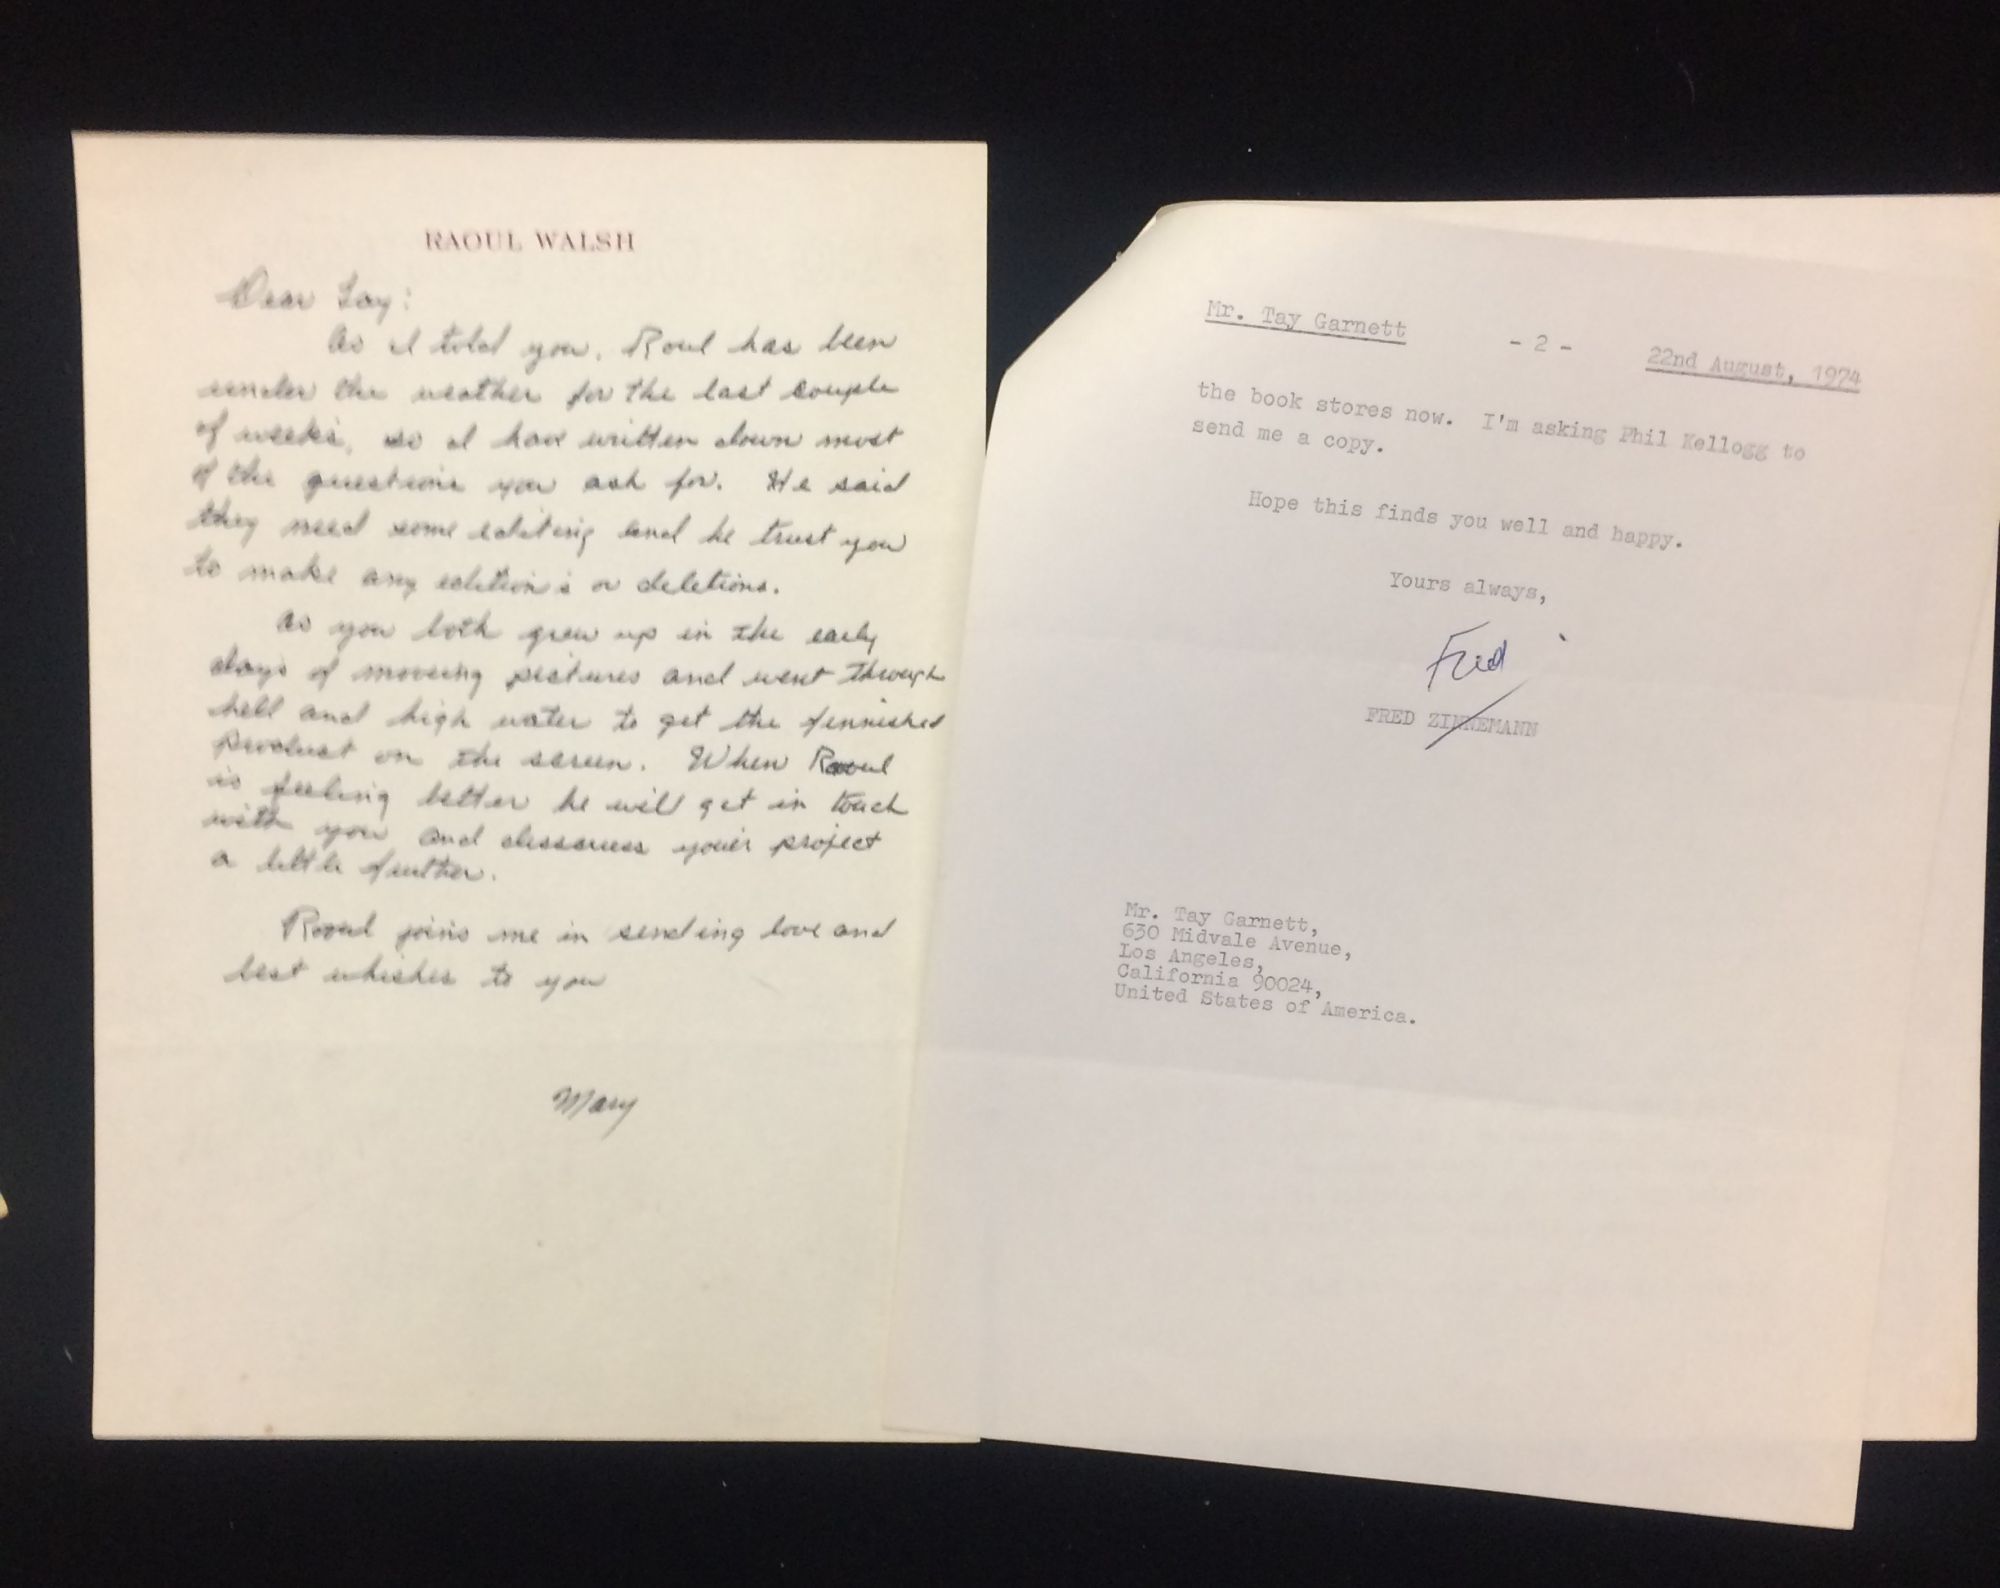 RAOUL WALSH
Dear Tay:
As I told you, Roul has been
under the weather for the last couple
of weeks, so I have written down most
of the questions you ask for. He said
they need some editing and he trust you
to make any edition's or deletions.
As you both grew up in the early
days of moveing pictures and went through
hell and high water to get the finnished
product on the screen. When Raoul
is feeling better he will get in touch
with you and your project
a little further.
Raoul joins me in sending love and
best whishes to you
Mary
Mr. Tay Garnett - 2 - 22nd August, 1974
the book stores now. I'm asking Phil Kellogg to
send me a copy.
Hope this finds you well and happy.
Yours always,
Fred
FRED ZINNEMANN
Mr. Tay Garnett,
630 Midvale Avenue,
Los Angeles,
California 90024,
United States of America.